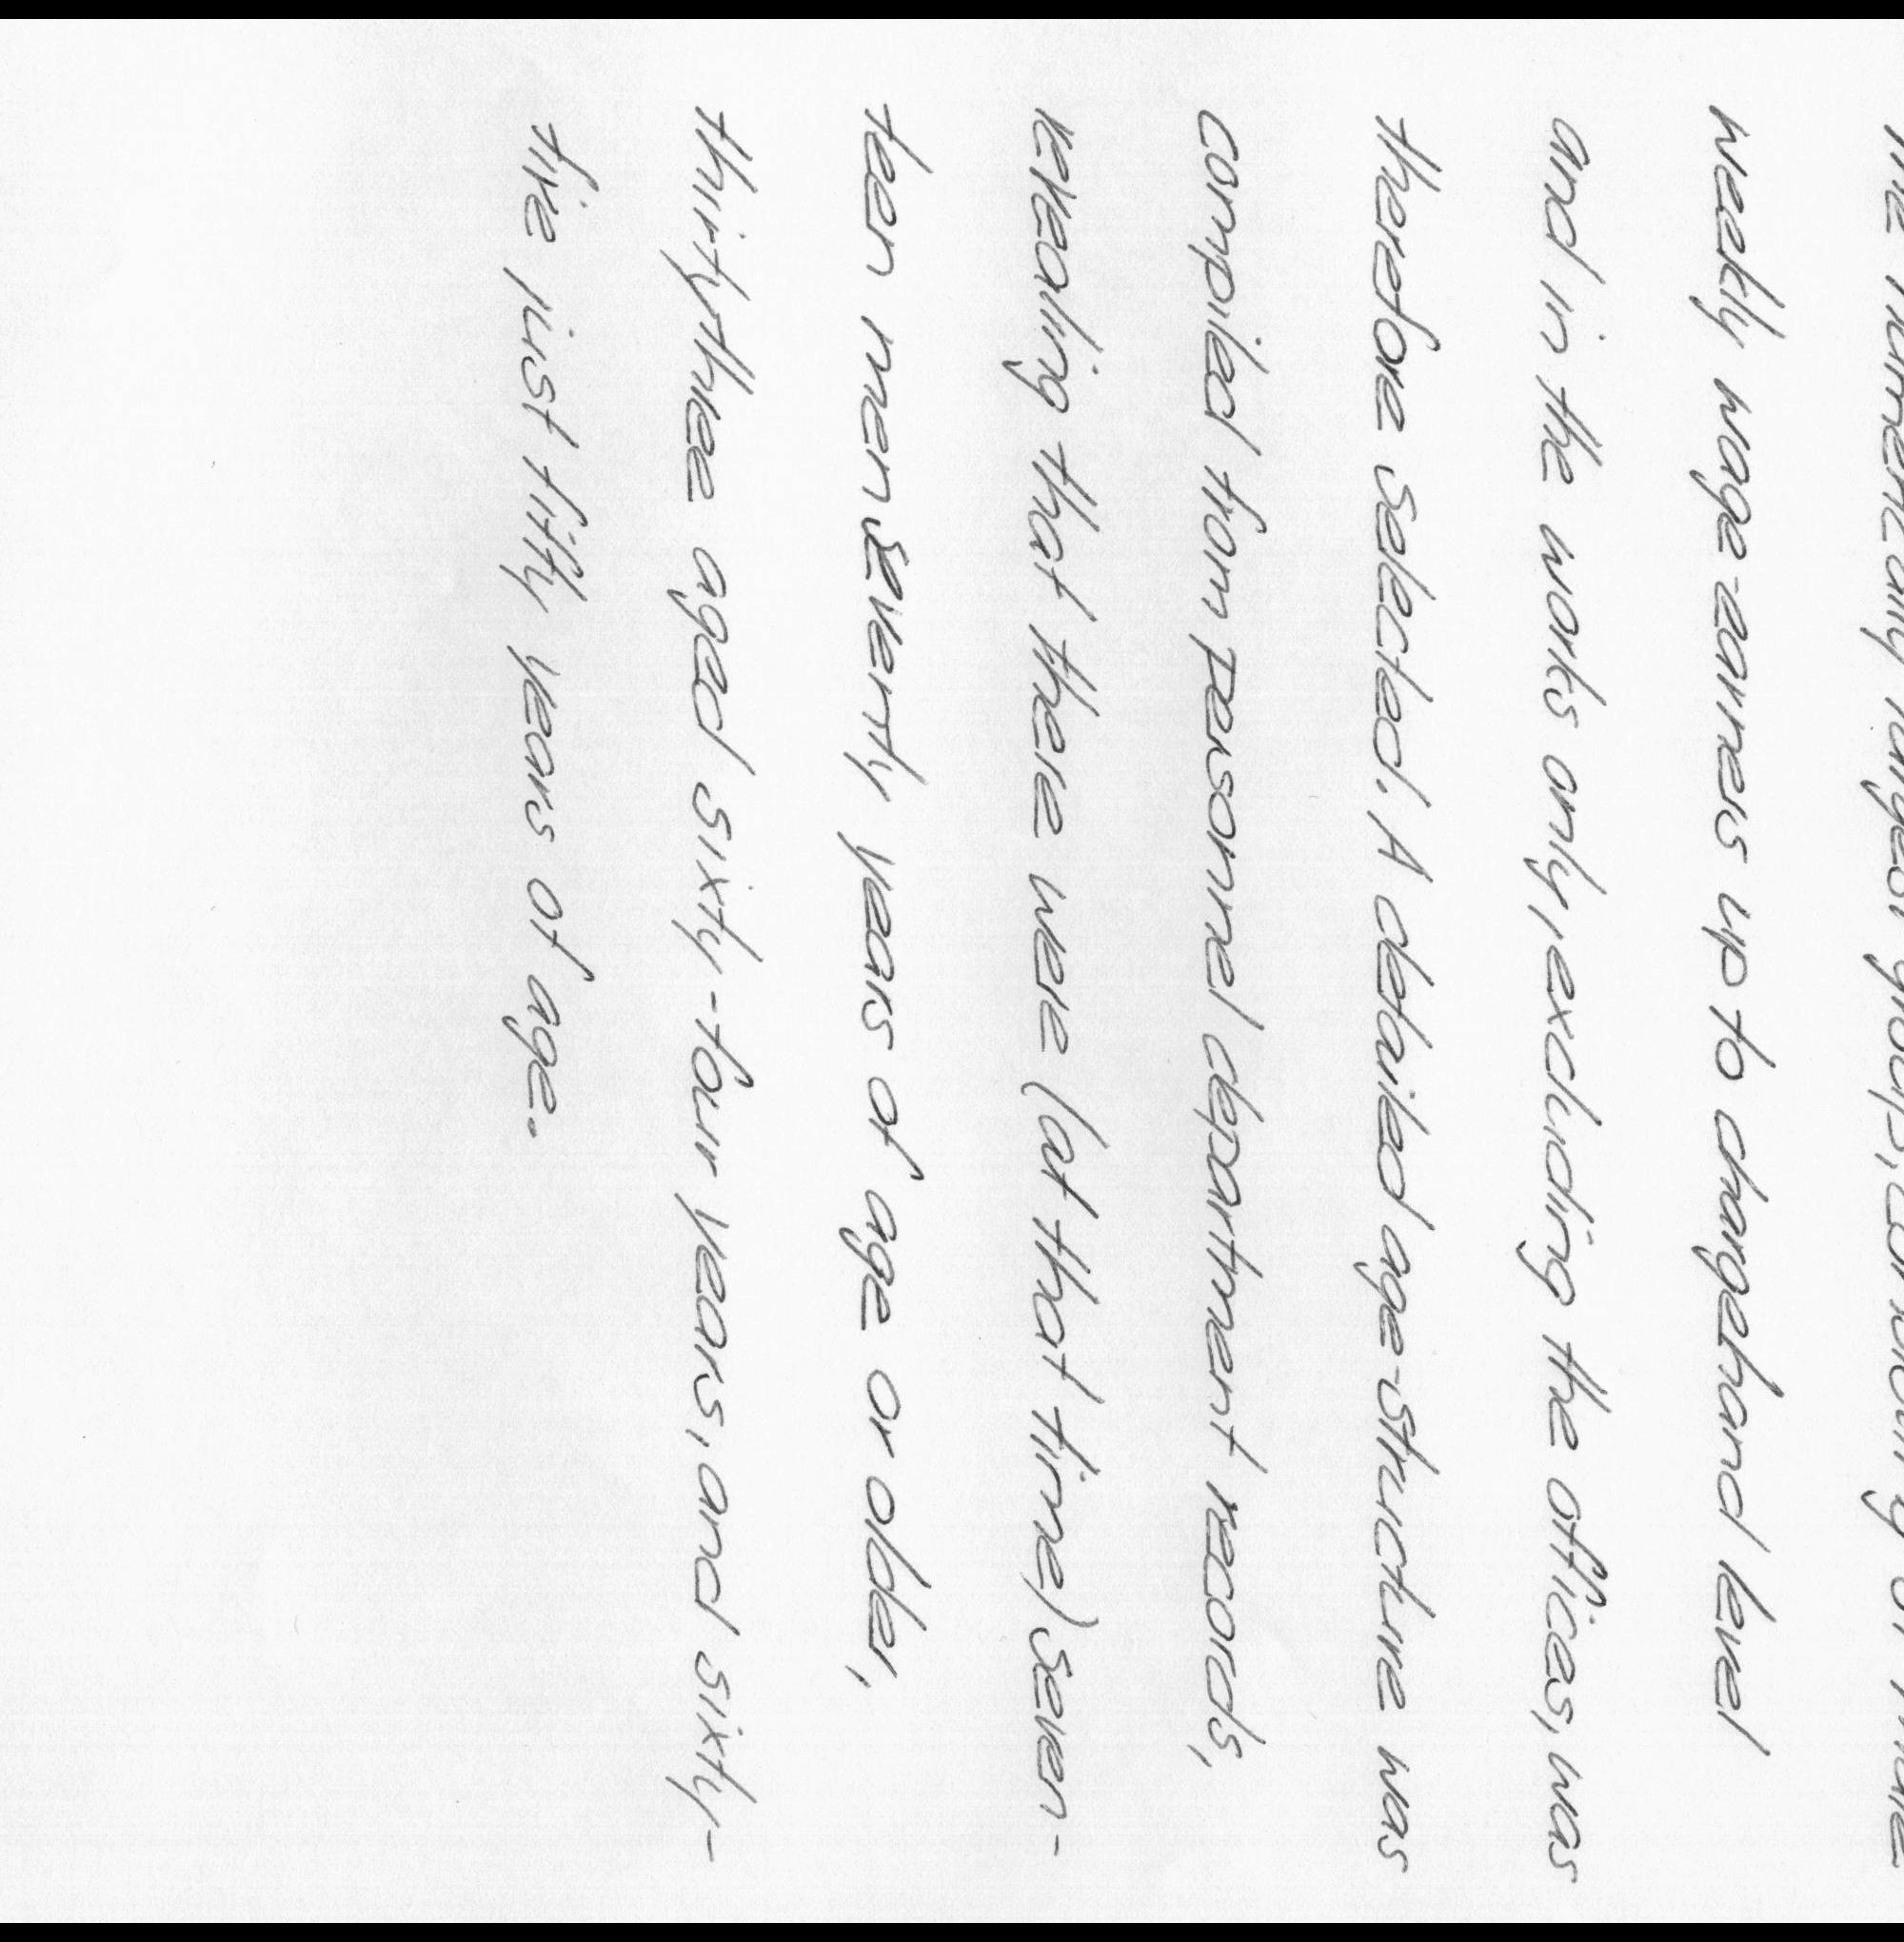 the numerically largest groups, consisting of male
weekly wage-earners up to chargehand level
and in the works only, excluding the offices, was
therefore selected. A detailed age-structure was
compiled from personnel department records,
revealing that there were (at that time) seven-
teen men seventy years of age or older,
thirtythree aged sixty-four years, and sixty-
five just fifty years of age.